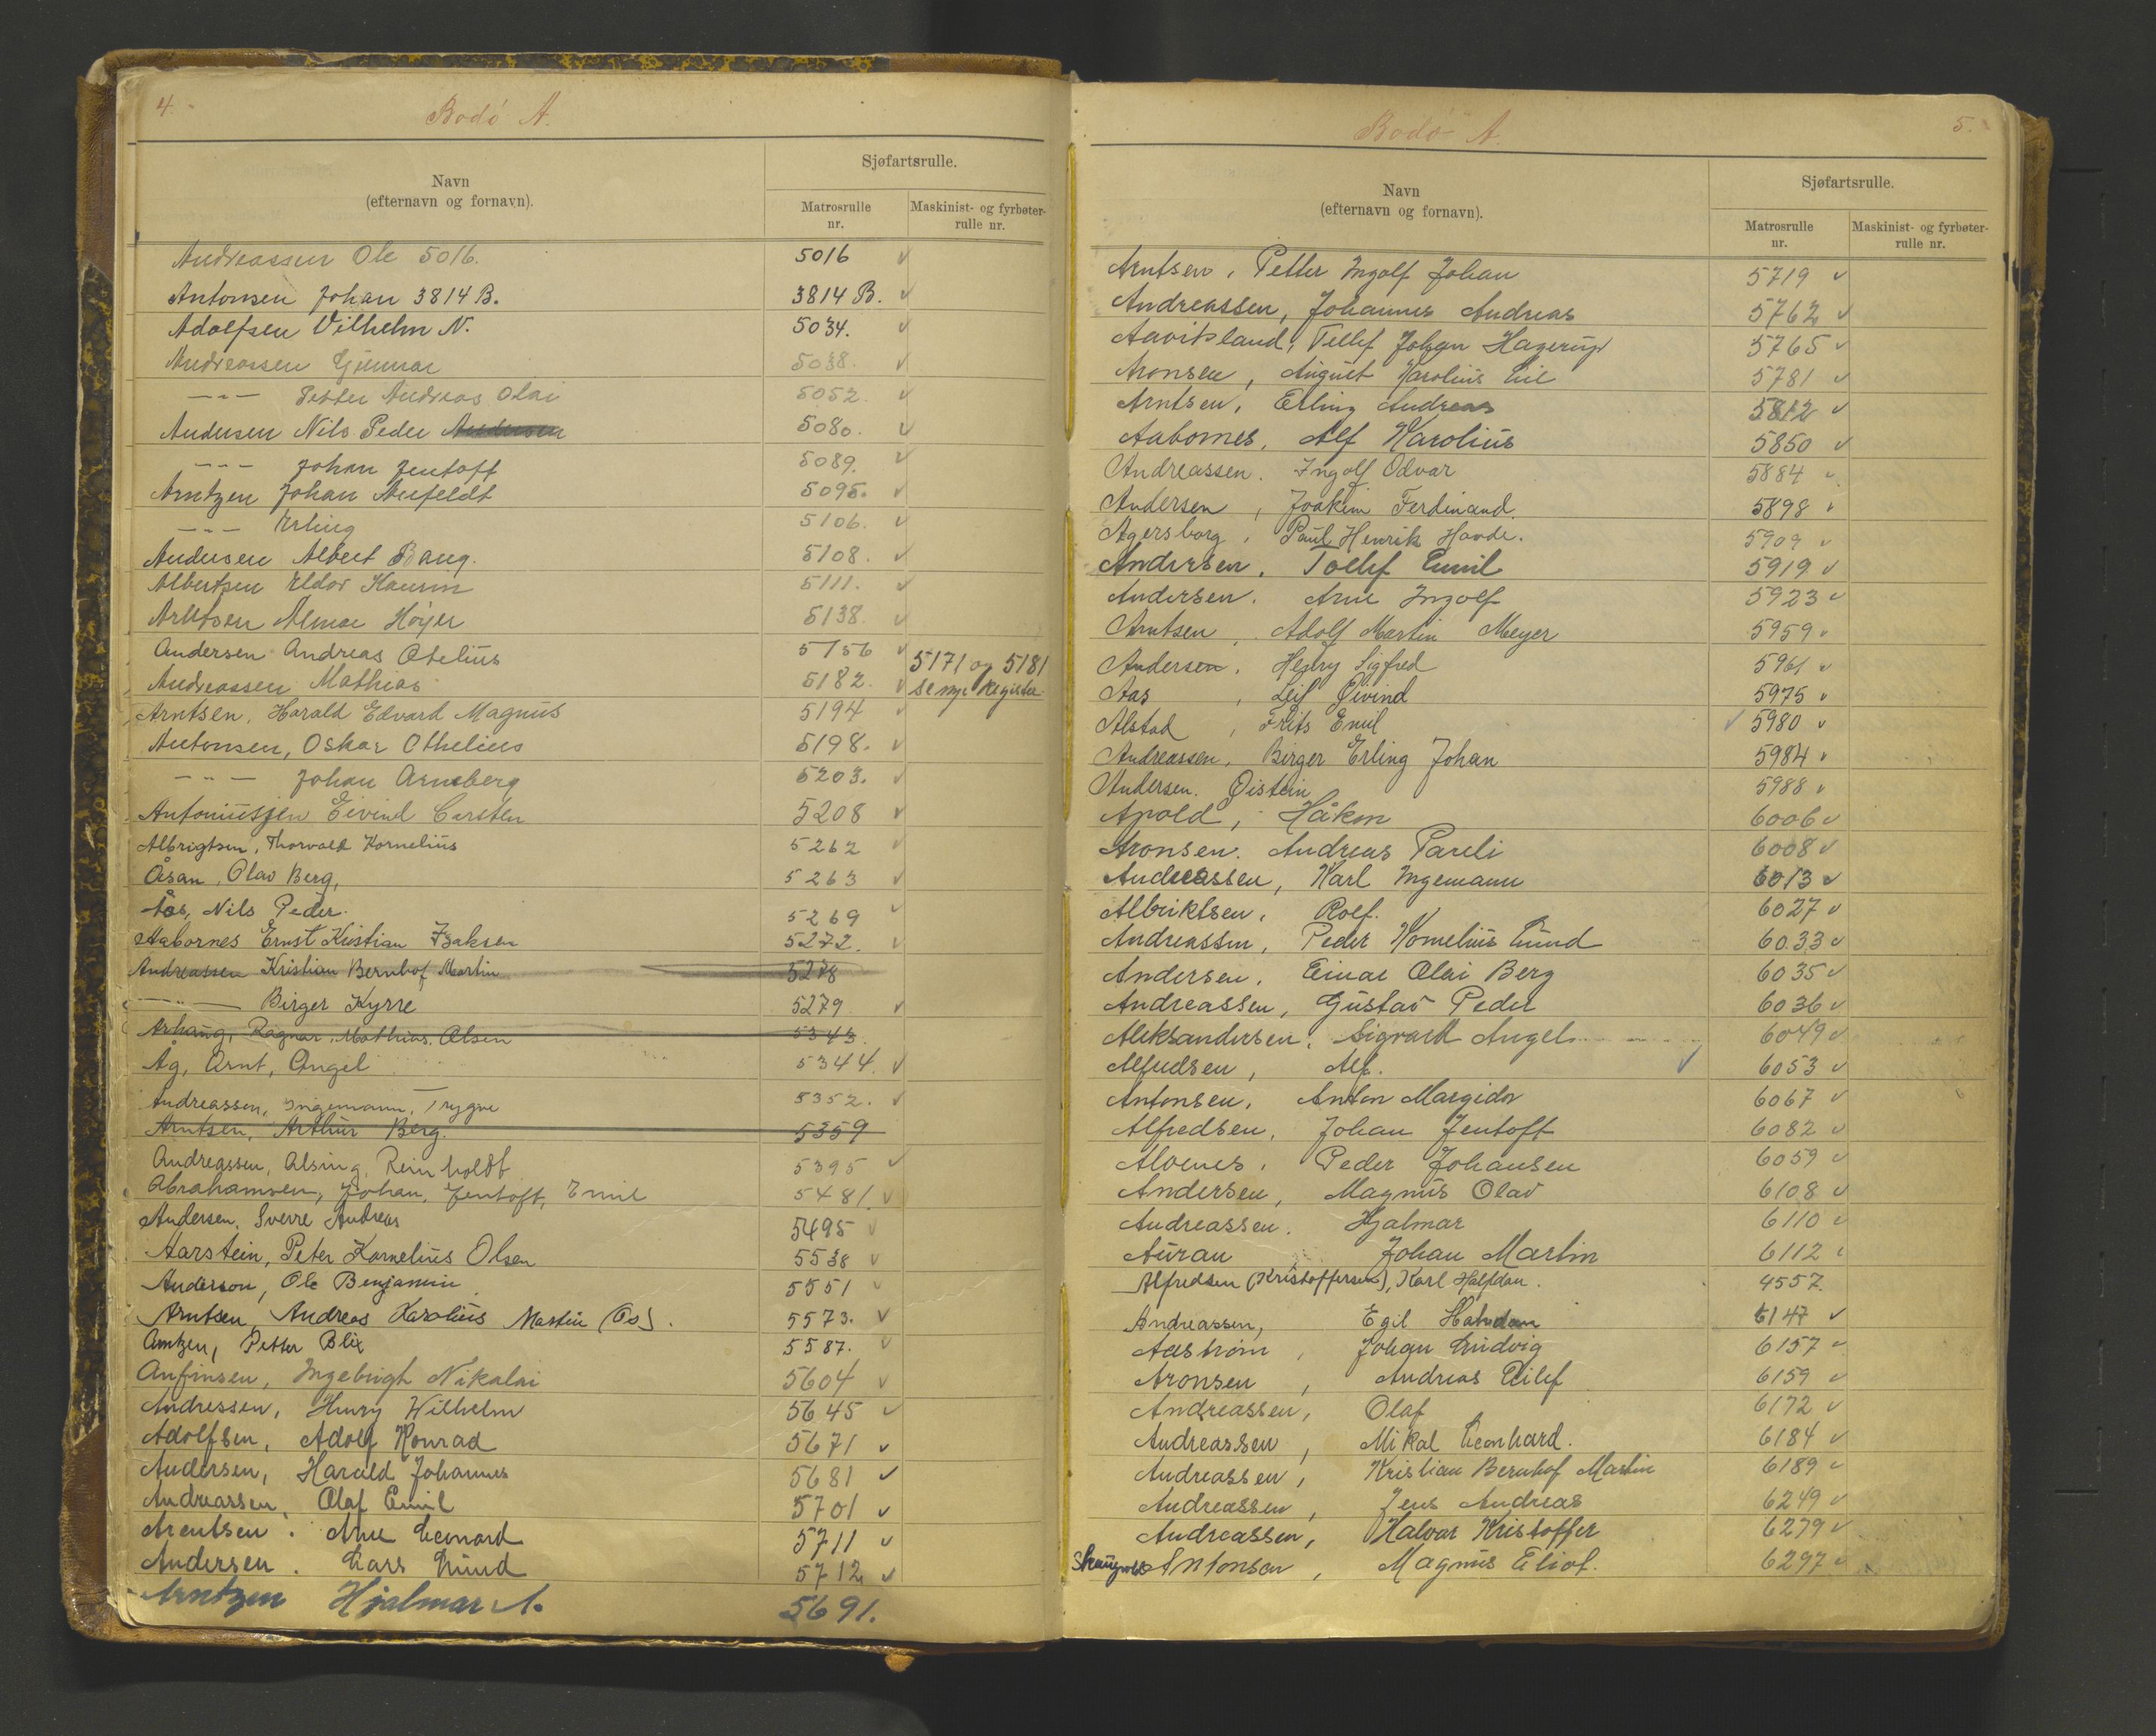 4.
Bodó A.
Navn
(efternavn og fornavn).
Sjøfartsrulle.
Matrosrulle
nr.
Maskinist- og fyrbøter-
rulle nr.
Andreassen Ole 5016. 5016 ✓
Antonsen Johan 3814 B. 3814 B. ✓
Adolfsen Vilhelm N. 5034. ✓
Andreassen Gunnar 5038. ✓
—"— Petter Andreas Olai 5052. ✓
Andersen Nils Peder Andersen 5080. ✓
—"— Johan Jentoft 5089. ✓
Arntzen Johan Anfeldt 5095. ✓
—"— Erling 5106. ✓
Andersen Albert Bang. 5108. ✓
Albertsen Eldor Kaurin 5111. ✓
Arntsen Almar Høyer 5138. ✓
Andersen Andreas Otelius 5156 ✓
5171 og 5181
Andreassen Mathias 5182. ✓ se nye Register
Arntsen, Harald Edvard Magnus 5194 ✓
Antonsen, Oskar Othelius 5198. ✓
—"— Johan Arneberg 5203. ✓
Antoniussen Eivind Carsten 5208 ✓
Albrigtsen, Thorvald Kornelius 5262 ✓
Åsan, Olav Berg, 5263 ✓
Ås, Nils Peder. 5269 ✓
Aabornes Ernst Kristian Isaksen 5272. ✓
Andreassen Kristian Bernhof Martin 5278
—"— Birger Kyrre 5279 ✓
Arhaug, Ragnar, Mathias, Olsen 5343
Åg, Arnt, Angel 5344. ✓
Andreassen, Ingemann, Trygve 5352. ✓
Arntsen, Arthur Berg. 5359
Andreassen, Alsing, Reinholdt 5395 ✓
Abrahamsen, Johan, Jentoft, Emil 5481. ✓
Andersen, Sverre Andreas 5495 ✓
Aarstein, Peter Kornelius Olsen 5538 ✓
Anderson, Ole Benjamin 5551 ✓
Arntsen, Andreas Karolius Martin (Os). 5573. ✓
Arntzen, Petter Blix 5587. ✓
Anfinsen, Ingebrigt Nikolai 5604 ✓
Andressen, Henry Wilhelm 5645 ✓
Adolfsen, Adolf Konrad 5671 ✓
Andersen, Harald Johannes 5681 ✓
Andreassen, Olaf Emil 5701 ✓
Arentsen. Arne Leonard 5711 ✓
Andersen. Lars Lund 5712 ✓
Arntzen Hjalmar A. 5691.
5.
Bodó A.
Navn
(efternavn og fornavn).
Sjøfartsrulle.
Matrosrulle
nr.
Maskinist- og fyrbøter-
rulle nr.
Arntsen, Petter Ingolf Johan 5719 ✓
Andreassen, Johannes Andreas 5762 ✓
Aavitsland, Tellef Johan Hagerup 5765 ✓
Aronsen, August Karolius Eie 5781 ✓
Arntsen, Erling Andreas 5812 ✓
Aabornes, Alf Karolius 5850 ✓
Andreassen. Ingolf Odvar 5884 ✓
Andersen, Joakim Ferdinand. 5898 ✓
Agersborg, Paul Henrik Havde. 5909 ✓
Andersen. Tollef Emil 5919 ✓
Andersen. Arne Ingolf 5923 ✓
Arntsen, Adolf Martin Meyer 5959 ✓
Andersen. Henry Sigfred 5961 ✓
Aas, Leif Øivind 5975 ✓
Alstad, Frits Emil ✓ 5980 ✓
Andreassen, Birger Erling Johan 5984 ✓
Andersen. Øistein 5988 ✓
Apold, Håkon 6006 ✓
Aronsen. Andreas Pareli 6008 ✓
Andreassen, Karl Ingemann 6013 ✓
Albriktsen, Rolf. 6027 ✓
Andreassen, Peder Kornelius Lund 6033 ✓
Andersen. Einar Olai Berg 6035 ✓
Andreassen, Gustav Peder 6036 ✓
Aleksandersen. Sigvard Angel 6049 ✓
Alfredsen, Alf. ✓ 6053 ✓
Antonsen. Anton Margido 6067 ✓
Alfredsen. Johan Jentoft 6082 ✓
Alvenes. Peder Johansen 6059 ✓
Andersen, Magnus Olav 6108 ✓
Andreassen. Hjalmar 6110 ✓
Auran Johan Martin 6112 ✓
Alfredsen (Kristoffersen), Karl Halfdan. 4557.
Andreassen, Egil 6147 ✓
Aastrøm, Johan Ludvig 6157 ✓
Aronsen, Andreas Eilif 6159 ✓
Andreassen, Olaf 6172 ✓
Andreassen, Mikal Leonhard. 6184 ✓
Andreassen, Kristian Bernhof Martin 6189 ✓
Andreassen, Jens Andreas 6249 ✓
Andreassen, Halvar Kristoffer 6279 ✓
Antonsen, Magnus Eliot. 6297 ✓